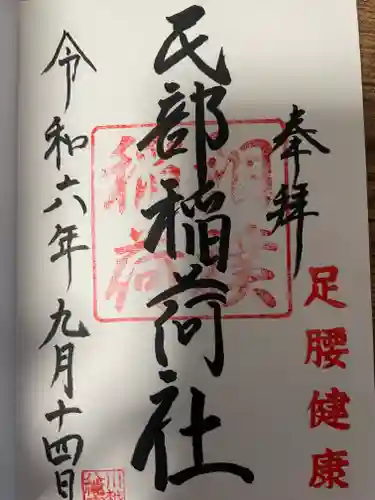 奉拝
足腰健康
民部稲荷社
令和六年九月十四日